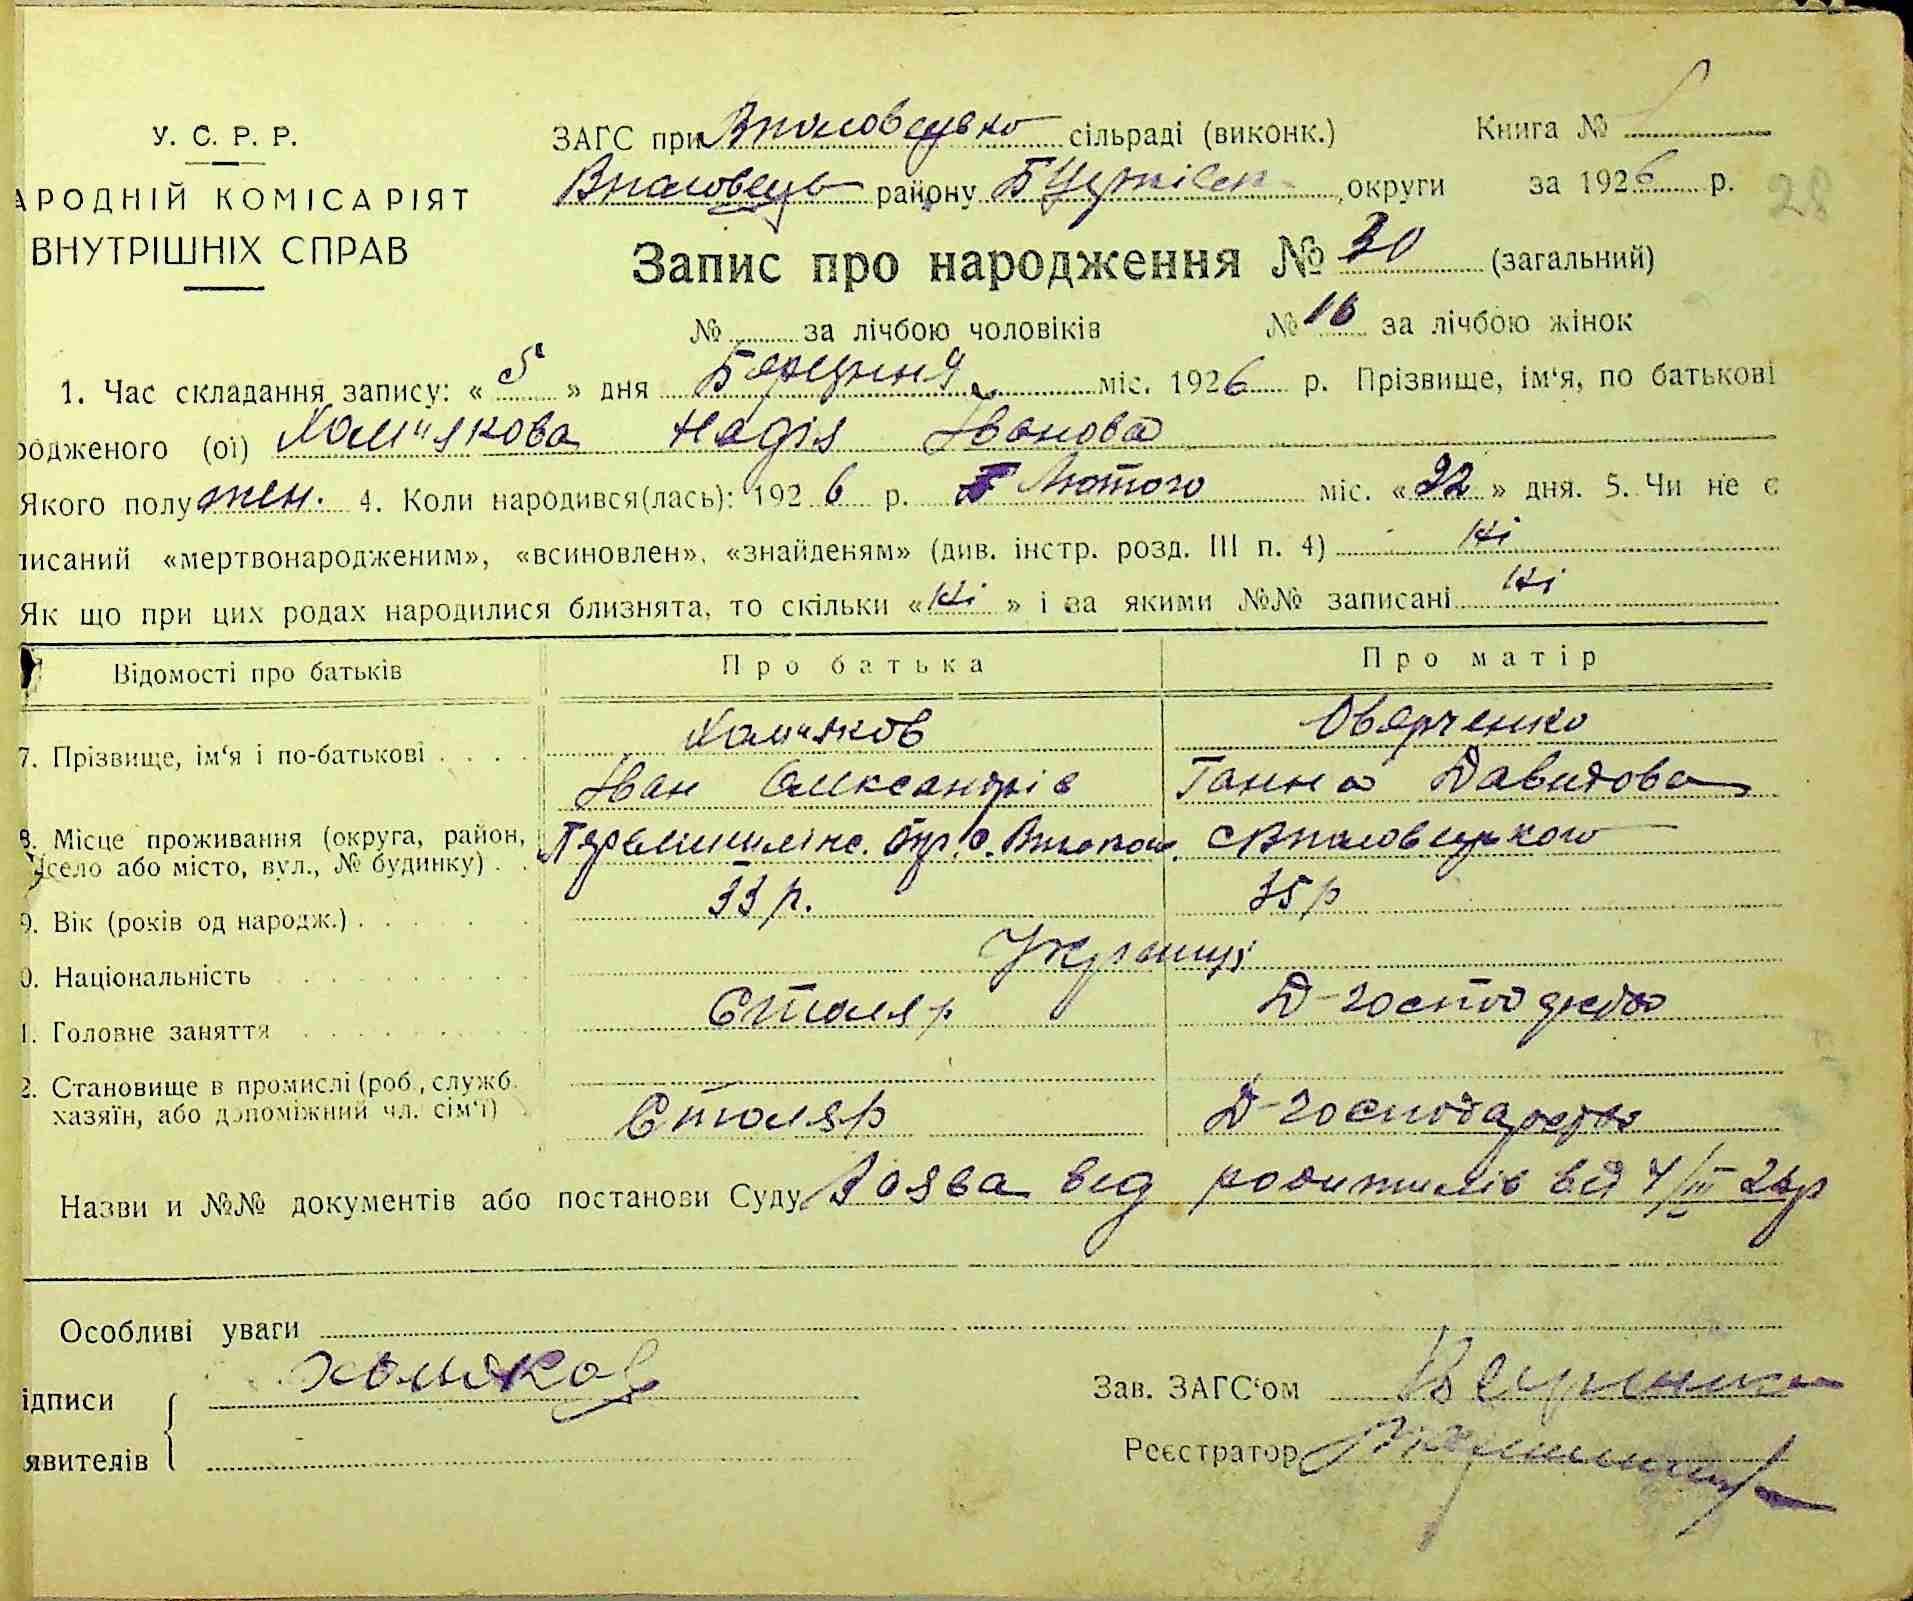 У. С. Р. Р.
АРОДНІЙ КОМІСАРІЯТ
ВНУТРІШНІХ СПРАВ
ЗАГС при сільраді (виконк.) Книга №
району округи за 1926 р. 28
Запис про народження № 30 (загальний)
№ за лічбою чоловіків № 16 за лічбою жінок
1. Час складання запису: « 5 » дня Березня міс. 1926 р. Прізвище, ім'я, по батькові
родженого (ої) Хом'якова Надія Іванова
Якого полу жен. 4. Коли народився(лась): 1926 р. Лютого міс. « 22 » дня. 5. Чи не є
писаний «мертвонародженим», «всиновлен», «знайденям» (див. інстр. розд. III п. 4) Ні
Як що при цих родах народилися близнята, то скільки « Ні » і за якими №№ записані Ні
Відомості про батьків Про батька Про матір
7. Прізвище, ім'я і по-батькові Хом'яков Оверченко
Іван Олександрів Ганна Давидова
8. Місце проживання (округа, район,
село або місто, вул., № будинку)
9. Вік (років од народж.) 33 р. 35 р
0. Національність Українці
1. Головне заняття Столяр Д-господарство
2. Становище в промислі (роб., служб.
хазяїн, або допоміжний чл. сім'ї) Столяр Д-господарство
Назви и №№ документів або постанови Суду Заява від родителів від 4/III 26р
Особливі уваги
ідписи Хомяков Зав. ЗАГС'ом
явителів Реєстратор